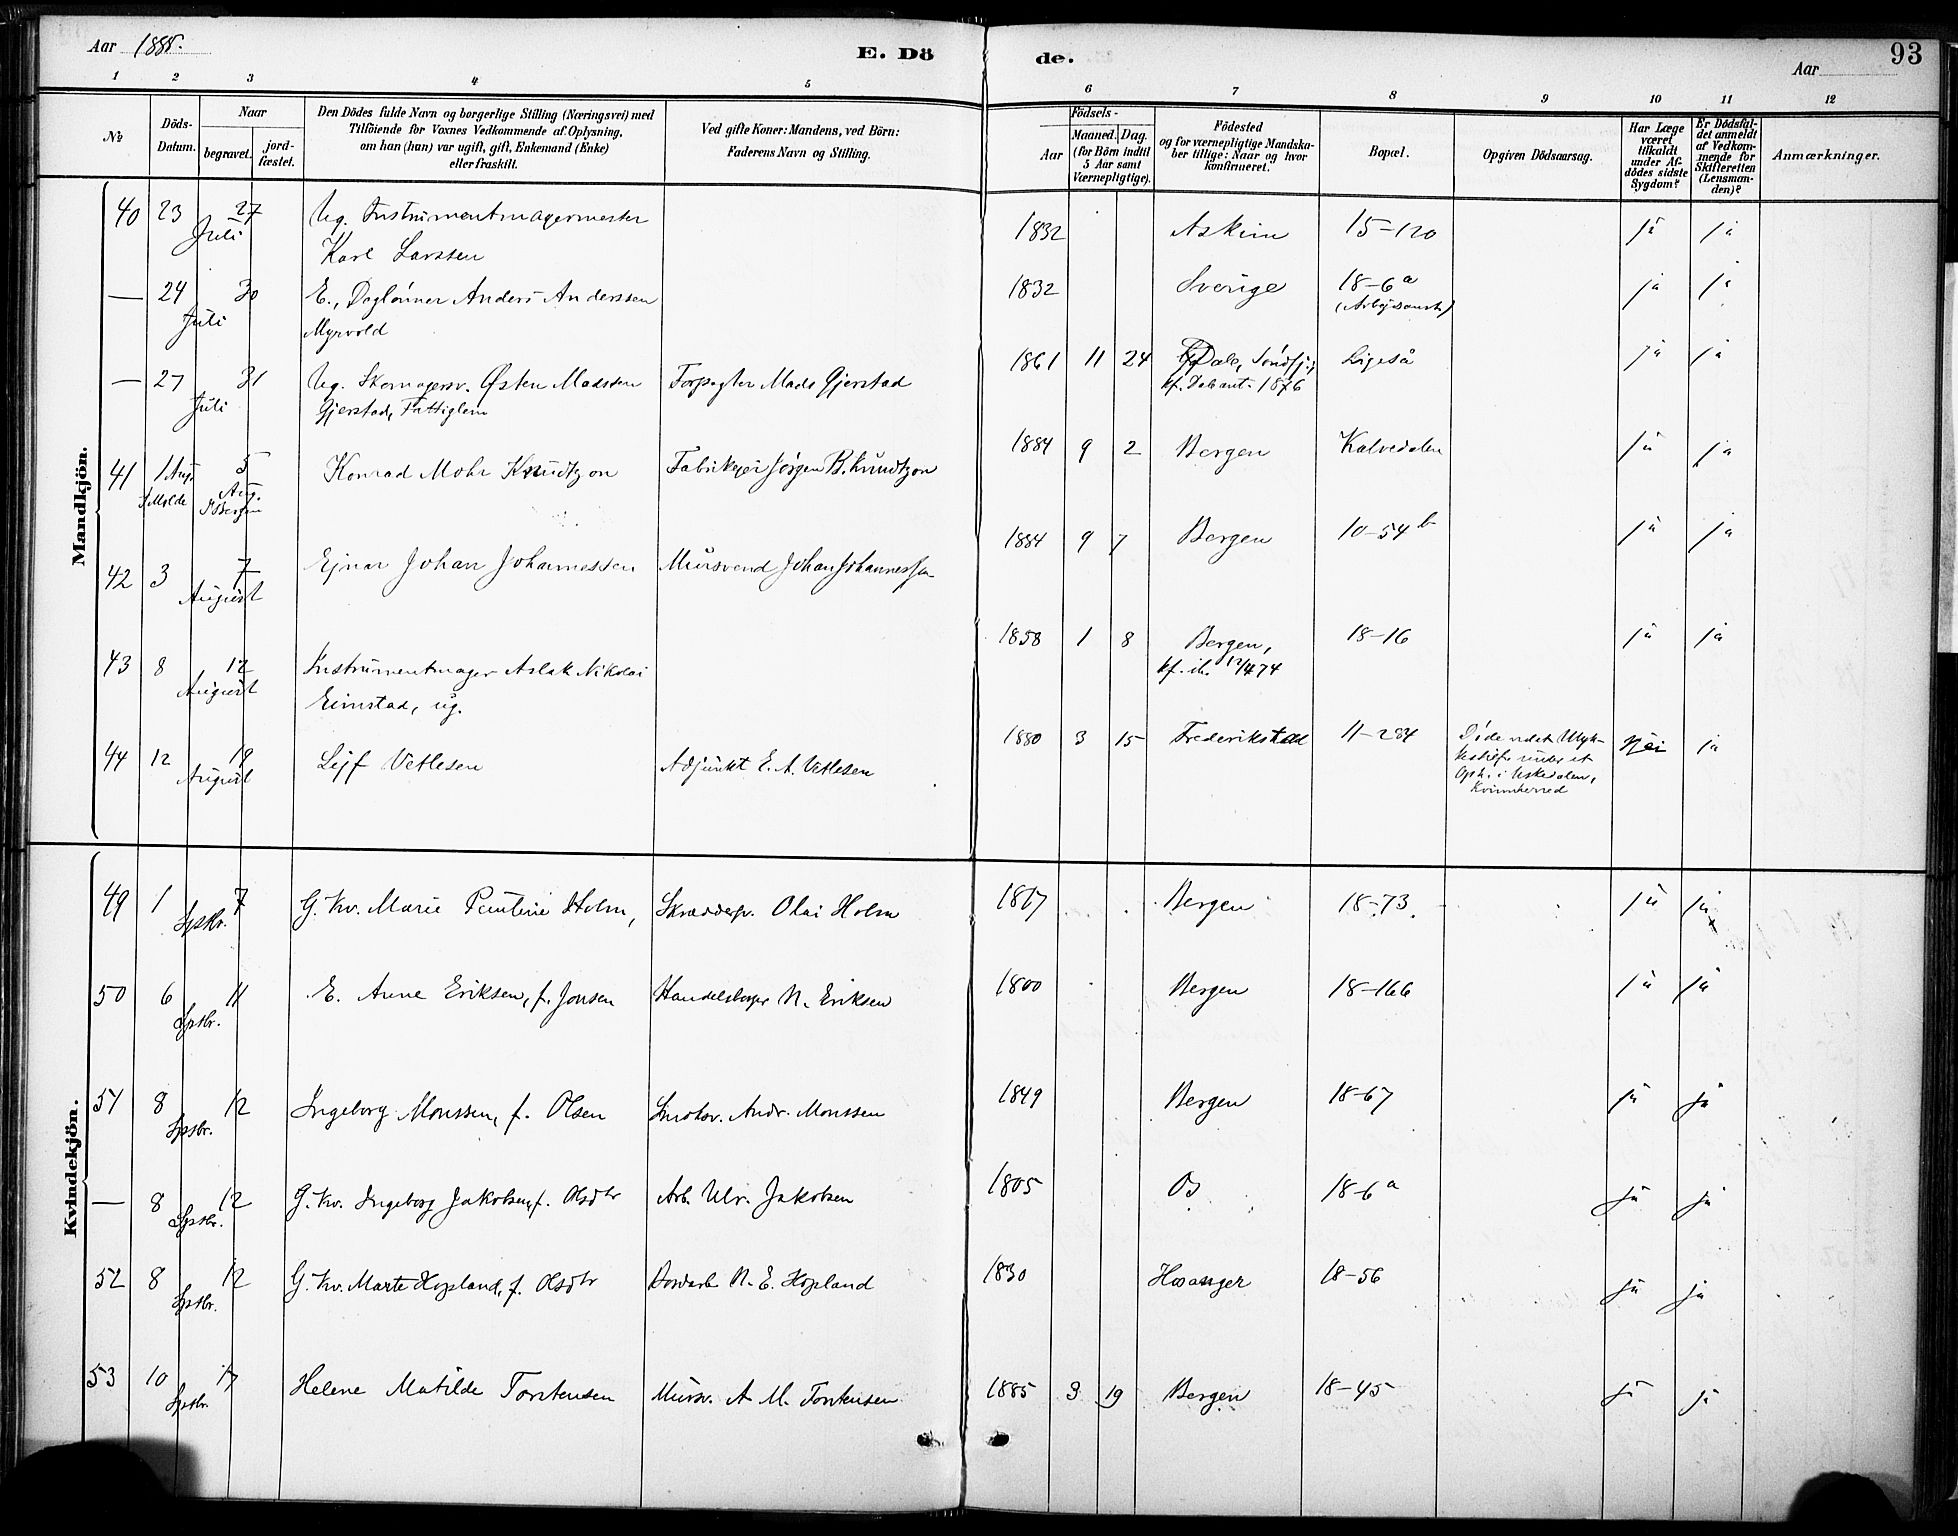 Aar 1885.
E. Dö
de.
Aar
93
1 2 3 4 5 6 7 8 9 10 11 12
№
Döds-
Datum.
Naar
begravet.
jord-
fæstet.
Den Dödes fulde Navn og borgerlige Stilling (Næringsvei) med
Tilföiende for Voxnes Vedkommende af Oplysning,
om han (hun) var ugift, gift, Enkemand (Enke)
eller fraskilt.
Ved gifte Koner: Mandens, ved Börn:
Faderens Navn og Stilling.
Födsels-
Aar
Maaned. Dag.
(for Börn indtil
5 Aar samt
Værnepligtige).
Födested
og for værnepligtige Mandska-
ber tillige: Naar og hvor
konfirmeret.
Bopæl.
Opgiven Dödsaarsag.
Har Læge
været
tilkaldt
under Af-
dödes sidste
Sygdom?
Er Dödsfal-
det anmeldt
af Vedkom-
mende for
Skifteretten
(Lensman-
den)?
Anmærkninger.
Mandkjön.
40 23 27 Ug. Instrumentmagermester 1832 Askim 15-120 ja ja
Juli
Karl Larssen
— 24 30 E., Daglönner Anders Anderssen 1832 Sverige 18-6a ja ja
Juli Myrvold
(Arbejdsanst.)
— 27 31 Ug. Skomagersv. Østen Madssen Forpagter Mads Gjerstad 1861 11 24 Dale, Söndfj., Ligeså ja ja
Juli Gjerstad, Fattiglem kf. 1876
41 1 Aug. 5 Konrad Mohr Knudtzon Fabrikejer Jörgen B. Knudtzon 1884 9 2 Bergen Kalvedalen ja ja
i Molde Aug.
i Bergen
42 3 7 Ejnar Johan Johannessen Mursvend Johan Johannessen 1884 9 7 Bergen 10-54b ja ja
August
43 8 12 Instrumentmager Aslak Nikolai 1858 1 8 Bergen, 18-16 ja ja
August Eimstad, ug. kf. ib. 12/4 74
44 12 19 Lejf Vetlesen Adjunkt E. A. Vetlesen 1880 3 15 Frederikstad 11-284 Döde ved et Ulyk- Nei ja
August
under et
Oph. i Uskedalen,
Kvinnherred
Kvindekjön.
49 1 7 G. Kv. Marie Holm, Skrædersv. Olai Holm 1817 Bergen 18-73 ja ja
Sptbr.
50 6 11 E. Anne Eriksen, f. Jonsen Handelsborger N. Eriksen 1800 Bergen 18-166 ja ja
Sptbr.
51 8 12 Ingeborg Monssen, f. Olsen Andr. Monssen 1849 Bergen 18-67 ja ja
Sptbr.
— 8 12 G. Kv. Ingeborg Jakobsen, f. Olsdtr Arb. Ulr. Jakobsen 1805 Os 18-6a ja ja
Sptbr.
52 8 12 G. Kv. Marte Hopland, f. Olsdtr N. E. Hopland 1830 Hosanger 18-56 ja ja
Sptbr.
53 10 17 Helene Matilde Torstensen Mursv. A. M. Torstensen 1885 3 19 Bergen 18-45 ja ja
Sptbr.